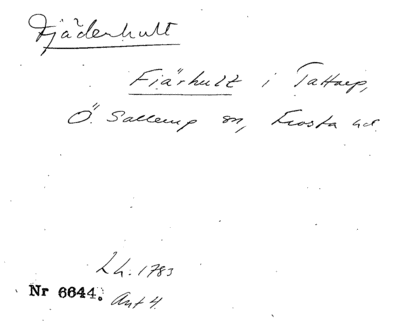 Fjäderhult
Fjärhult i Tattarp,
Ö. Sallerup sn, Frosta hd.
Lh. 1783
Nr 6644. Ant 4.